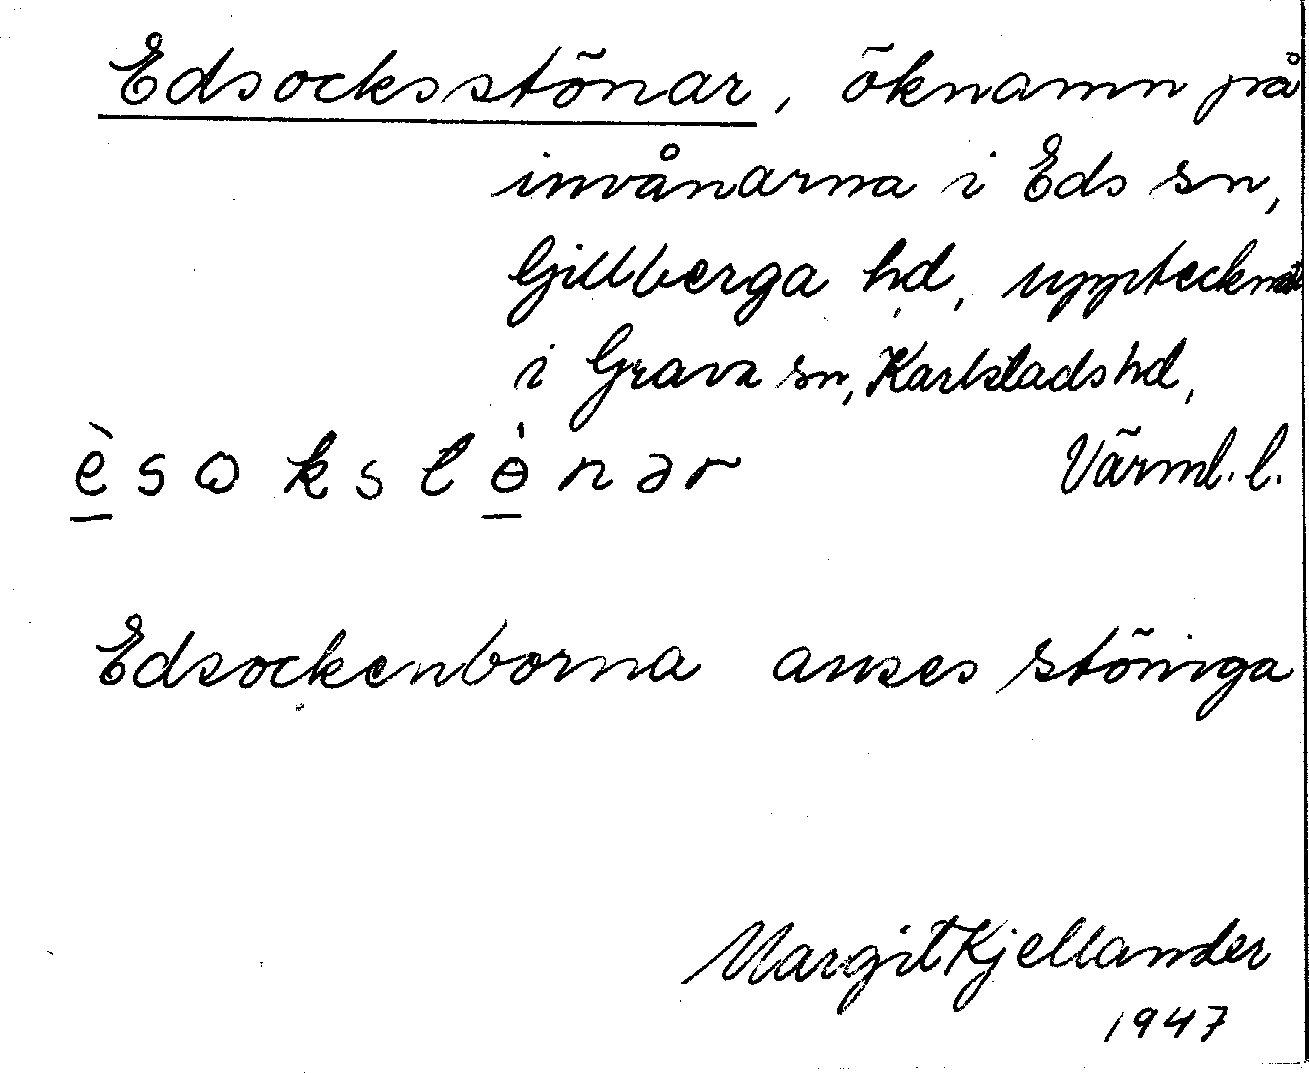 Edsocksstönar, öknamn på
invånarna i Eds sn,
Gillberga hd, upptecknat
i Grava sn, Karlstads hd,
Värml. l.
è s ω k s t ɵ̀ n ə r
Edsockenborna anses stöniga
Margit Kjellander
1947